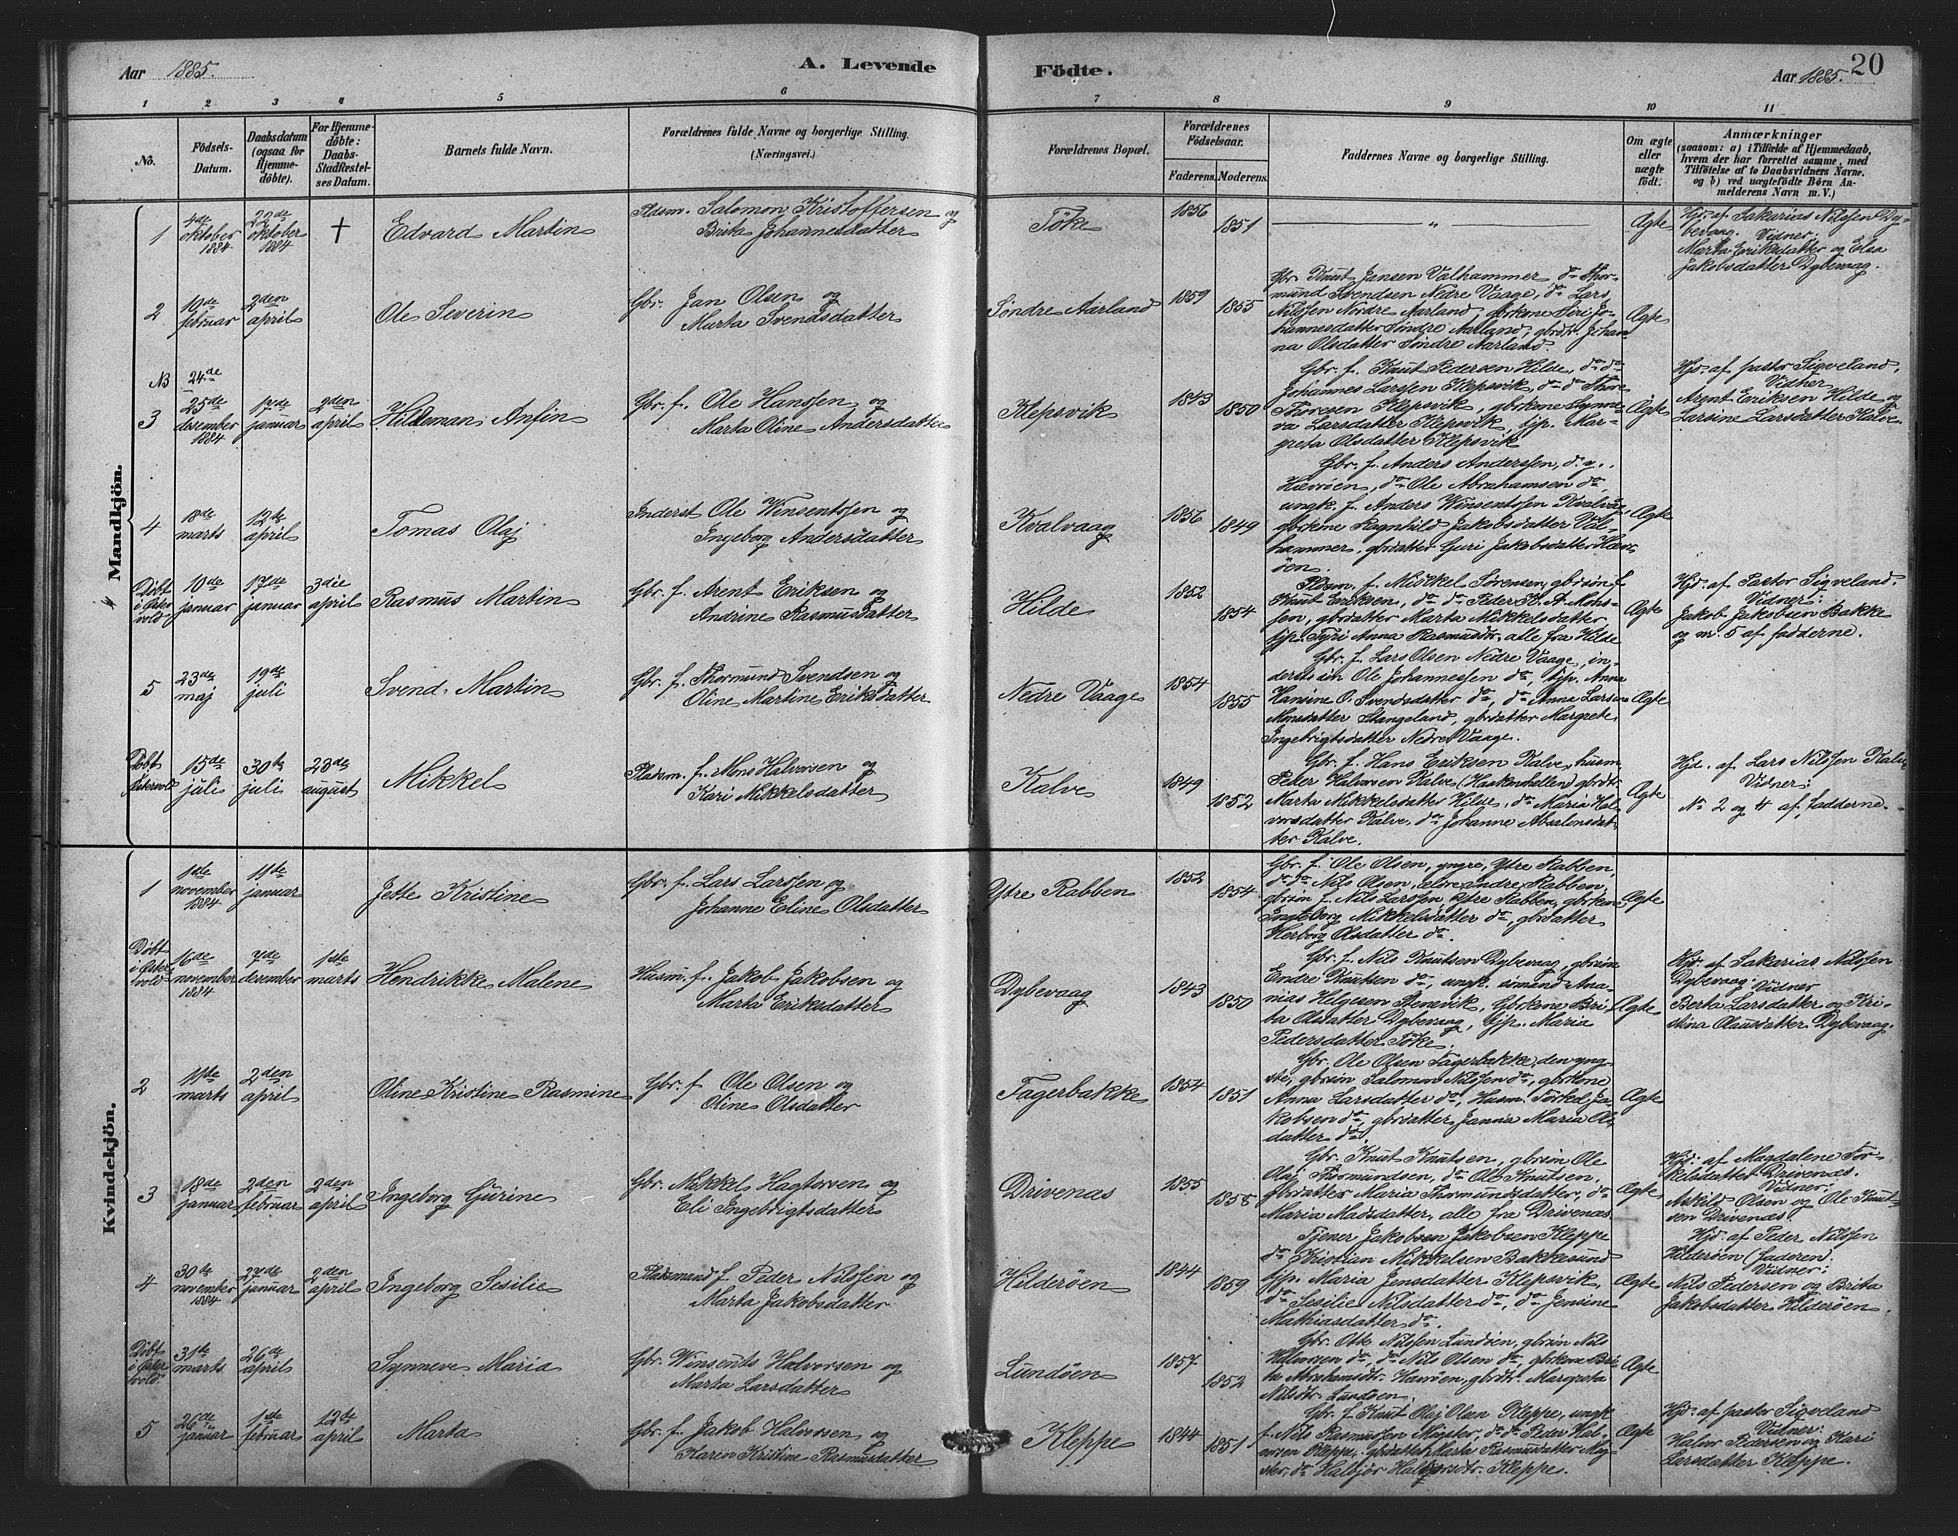 Aar 1885.
A. Levende
Födte.
Aar 1885. 20
1 2 3 4 5 6 7 8 9 10 11
No.
Födsels-
Datum.
Daabsdatum
(ogsaa for
Hjemme-
döbte).
For Hjemme-
döbte:
Daabs-
Stadfæstel-
ses Datum.
Barnets fulde Navn.
Forældrenes fulde Navne og borgerlige Stilling.
(Næringsvei.)
Forældrenes Bopæl.
Forældrenes
Födselsaar.
Faderens. Moderens.
Faddernes Navne og borgerlige Stilling.
Om ægte
eller
uægte
födt.
Anmærkninger
(saasom: a) i Tilfælde af Hjemmedaab,
hvem der har forrettet samme, med
Tilföielse af to Daabsvidners Navne.
og b) ved uægtefödte Börn An-
melderens Navn m. V.)
Mandkjön.
1
4de
oktober
1884
22de
oktober
1884
†
Edvard Martin
Pladsm. Salomon Kristoffersen og
Brita Johannesdatter
Töke
1856
1851
"
Ægte
Hjd. af Sakarias Nilssen Dy-
bevaag. Vidner:
Marta Eriksdatter og Elsa
Jakobsdatter Dybevaag.
2
16de
februar
2den
april
Ole Severin
Gbr. Jan Olsen og
Marta Svendsdatter
Søndre Aarland
1859
1855
Gbr. Knut Jensen Valhammer, do Thor-
mund Svendsen Nedre Vaage, do Lars
Nilssen Nordre Aarland, gbrkone Siri Jo-
hannesdatter Søndre Aarland, gbrdtr. Johan
na Olsdatter Søndre Aarland.
Ægte
NB
24de
3
25de
desember
1884
17de
januar
2den
april
Hildeman Anfin
Gbr. f. Ole Hanssen og
Marta Oline Andersdatter
Klepsvik
1843
1850
Gbr. f. Knut Pedersen Hilde, do do
Johannes Larssen Klepsvik, do do Thore
Thoresen Klepsvik, gbrkone Synne-
va Larsdatter Klepsvik, tjp. Mar-
greta Olsdatter Klepsvik
Ægte
Hjd. af pastor Sigveland,
Vidner
Arent Eriksen Hilde og
Larsine Larsdatter Kalve
4
18de
marts
12te
april
Tomas Olaj
Inderst Ole Winsentssen og
Ingeborg Andersdatter
Kvalvaag
1856
1849
Gbr. f. Anders Anderssen, d. y.
Hævröen, do Ole Abrahamsen do
ungk. f. Anders Winsentssen Kvalvaag,
gbrkone Ragnhild Jakobsdatter Val-
hammer, gbrdatter Guri Jakobsdatter Hævr-
öen.
Ægte
Døbt
i Øster
vold
10de
januar
17de
januar
3die
april
Rasmus Martin
Gbr. f. Arent Eriksen og
Andrine Rasmusdatter
Hilde
1852
1854
Pldsm. f. Mikkel Sørensen, gbrsön f.
Knut Eriksen, do do Peder K. A. Mons-
sen, gbrdatter Marta Mikkelsdatter
tjp. Syri Anna Rasmusdtr. alle fra Hilde
Ægte
Hjd. af Pastor Sigveland.
Vidner:
Jakob Jakobsen Bakke
og nr. 5 af fadderne.
5
23de
maj
19de
juli
Svend Martin
Gbr. f. Thormund Svendsen og
Oline Martine Eriksdatter
Nedre Vaage
1854
1855
Gbr. f. Lars Olsen Nedre Vaage, in-
derstsön Ole Johannessen do, tjp. Anna
Hansine O. Svendsdatter do, do Anna Larsine
Monsdatter Stangeland, gbrdatter Margrete
Ingebrigtsdatter Nedre Vaage.
Ægte
Døbt
Østervold
15de
juli
30te
juli
23de
august
Mikkel
Pladsm. f. Mons Halvorsen og
Kari Mikkelsdatter
Kalve
1849
1852
Gbr. f. Hans Eriksen Kalve, husm
Peter Halvorsen Kalve (Haakenhellen) gbrdtr.
Marta Mikkelsdatter Hilde, do Maria Hal-
vorsdatter Kalve, do Johanne Absalonsdat-
ter Kalve.
Ægte
Hjd. af Lars Nilssen Kalve
Vidner:
No 2 og 4 af fadderne.
Kvindekjön.
1
1ste
november
1884
11te
januar
Jette Kristine
Gbr. f. Lars Larssen og
Johanne Eline Olsdatter
Ytre Rabben
1852
1854
Gbr. f. Ole Olsen, yngre, Ytre Rabben,
do do Nils Olsen, ældre, indre Rabben,
gbrsön f. Nils Larssen, Ytre Rabben, gbrkone
Ingeborg Mikkelsdatter do, gbrdatter
Herborg Olsdatter do.
Ægte
Døbt
i Øster
vold
16de
november
1884
7de
desember
1ste
marts
Hendrikke Malene
Husm. f. Jakob Jakobsen og
Marta Eriksdatter
Dybevaag
1843
1850
Gbr. f. Nils Knutsen Dybevaag, gbrsön
Endre Knutsen do, ungk. sömand Ana-
nias Helgesen Stensvik, Gbrkone Bri-
ta Olsdatter Dybevaag, tjp. Maria
Pedersdatter Töke.
Ægte
Hjd. af Sakarias Nilssen
Dybevaag Vidner
Berta Larsdatter og Kri-
stina Olausdatter Dybevaag.
2
11te
marts
2den
april
Oline Kristine Rasmine
Gbr. f Ole Olsen og
Oline Olsdatter
Fagerbakke
1854
1851
Gbr. Ole Olsen Fagerbakke, den yng-
ste, gbrsön Salomon Nilssen do, gbrkone
Anna Larsdatter do, Husm. Torkel Ja-
kobsen do, gbrdatter Janna Maria Ols-
datter do.
Ægte
3
18de
januar
2den
februar
2den
april
Ingeborg Gürine
Gbr. Mikkel Hagtorsen og
Eli Ingebrigtsdatter
Drivenæs
1855
1858
Gbr. Knut Knutsen, gbrsön Ole
Olaj Thormundsen, do Ole Knutsen,
gbrdatter Maria Thormundsdatter, do
Maria Madsdatter, alle fra Drivenæs
Ægte
Hjd. af Magdalene Tor-
kelsdatter Drivenæs.
Vidner:
Askild Olsen og Ole Knut-
sen Drivenæs.
4
30te
november
1884
27de
januar
2den
april
Ingeborg Sesilie
Pladsmand f. Peder Nilssen og
Marta Jakobsdatter
Hilderöen
1844
1859
Tjener Jakobsen Jakobsen Kleppe
do Kristian Mikkelsen Bakkesund
tjp. Maria Jensdatter Klepsvik
do Sesilie Nilsdatter do, do Jensine
Mathiasdatter do.
Ægte
Hjd. af Peder Nilssen
Hilderöen (faderen).
Vidner:
Nils Pedersen og Brita
Jakobsdatter Hilderöen.
Døbt
i Øster
vold
31te
marts
26de
april
Synneve Maria
Gbr. Winsents Halvorsen og
Marta Larsdatter
Lundöen
1857
1852
Gbr. Otte Nilssen Lundöen, gbrsön Nils
Halvorsen do, do Nils Olsen do, gbrkone Bri-
ta Abrahamsdtr. Hævröen, gbrdtr. Margreta
Nilsdtr. Lundöen.
Ægte
5
26de
januar
1ste
februar
12te
april
Marta
Gbr. f. Jakob Halvorsen og
Karen Kristine Rasmusdatter
Kleppe
1844
1851
Gbr. f. Knut Olaj Olsen Kleppe, ungk
f. Nils Rasmussen Mögster, do do Peder Hal-
vorsen Kleppe, gbrdatter Marta Rasmusdatter Mög-
ster, do Halbjör Halvorsdtr. Kleppe.
Ægte
Hjd. af pastor Sigveland
Vidner:
Halvor Pedersen og Kari
Larsdatter Kleppe.